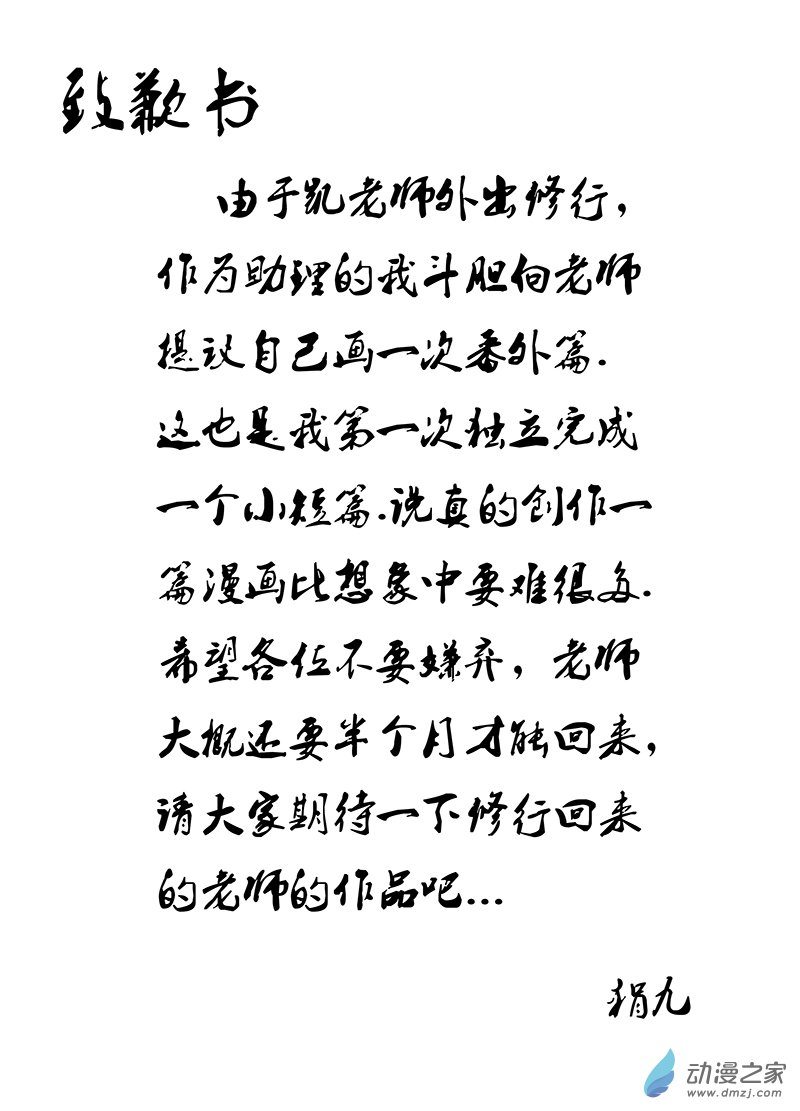 致歉书
由于凯老师外出修行，
作为助理的我斗胆向老师
提议自己画一次番外篇.
这也是我第一次独立完成
一个小短篇.说真的创作一
篇漫画比想象中要难很多.
希望各位不要嫌弃，老师
大概还要半个月才能回来，
请大家期待一下修行回来
的老师的作品吧...
九
动漫之家
www.dmzj.com